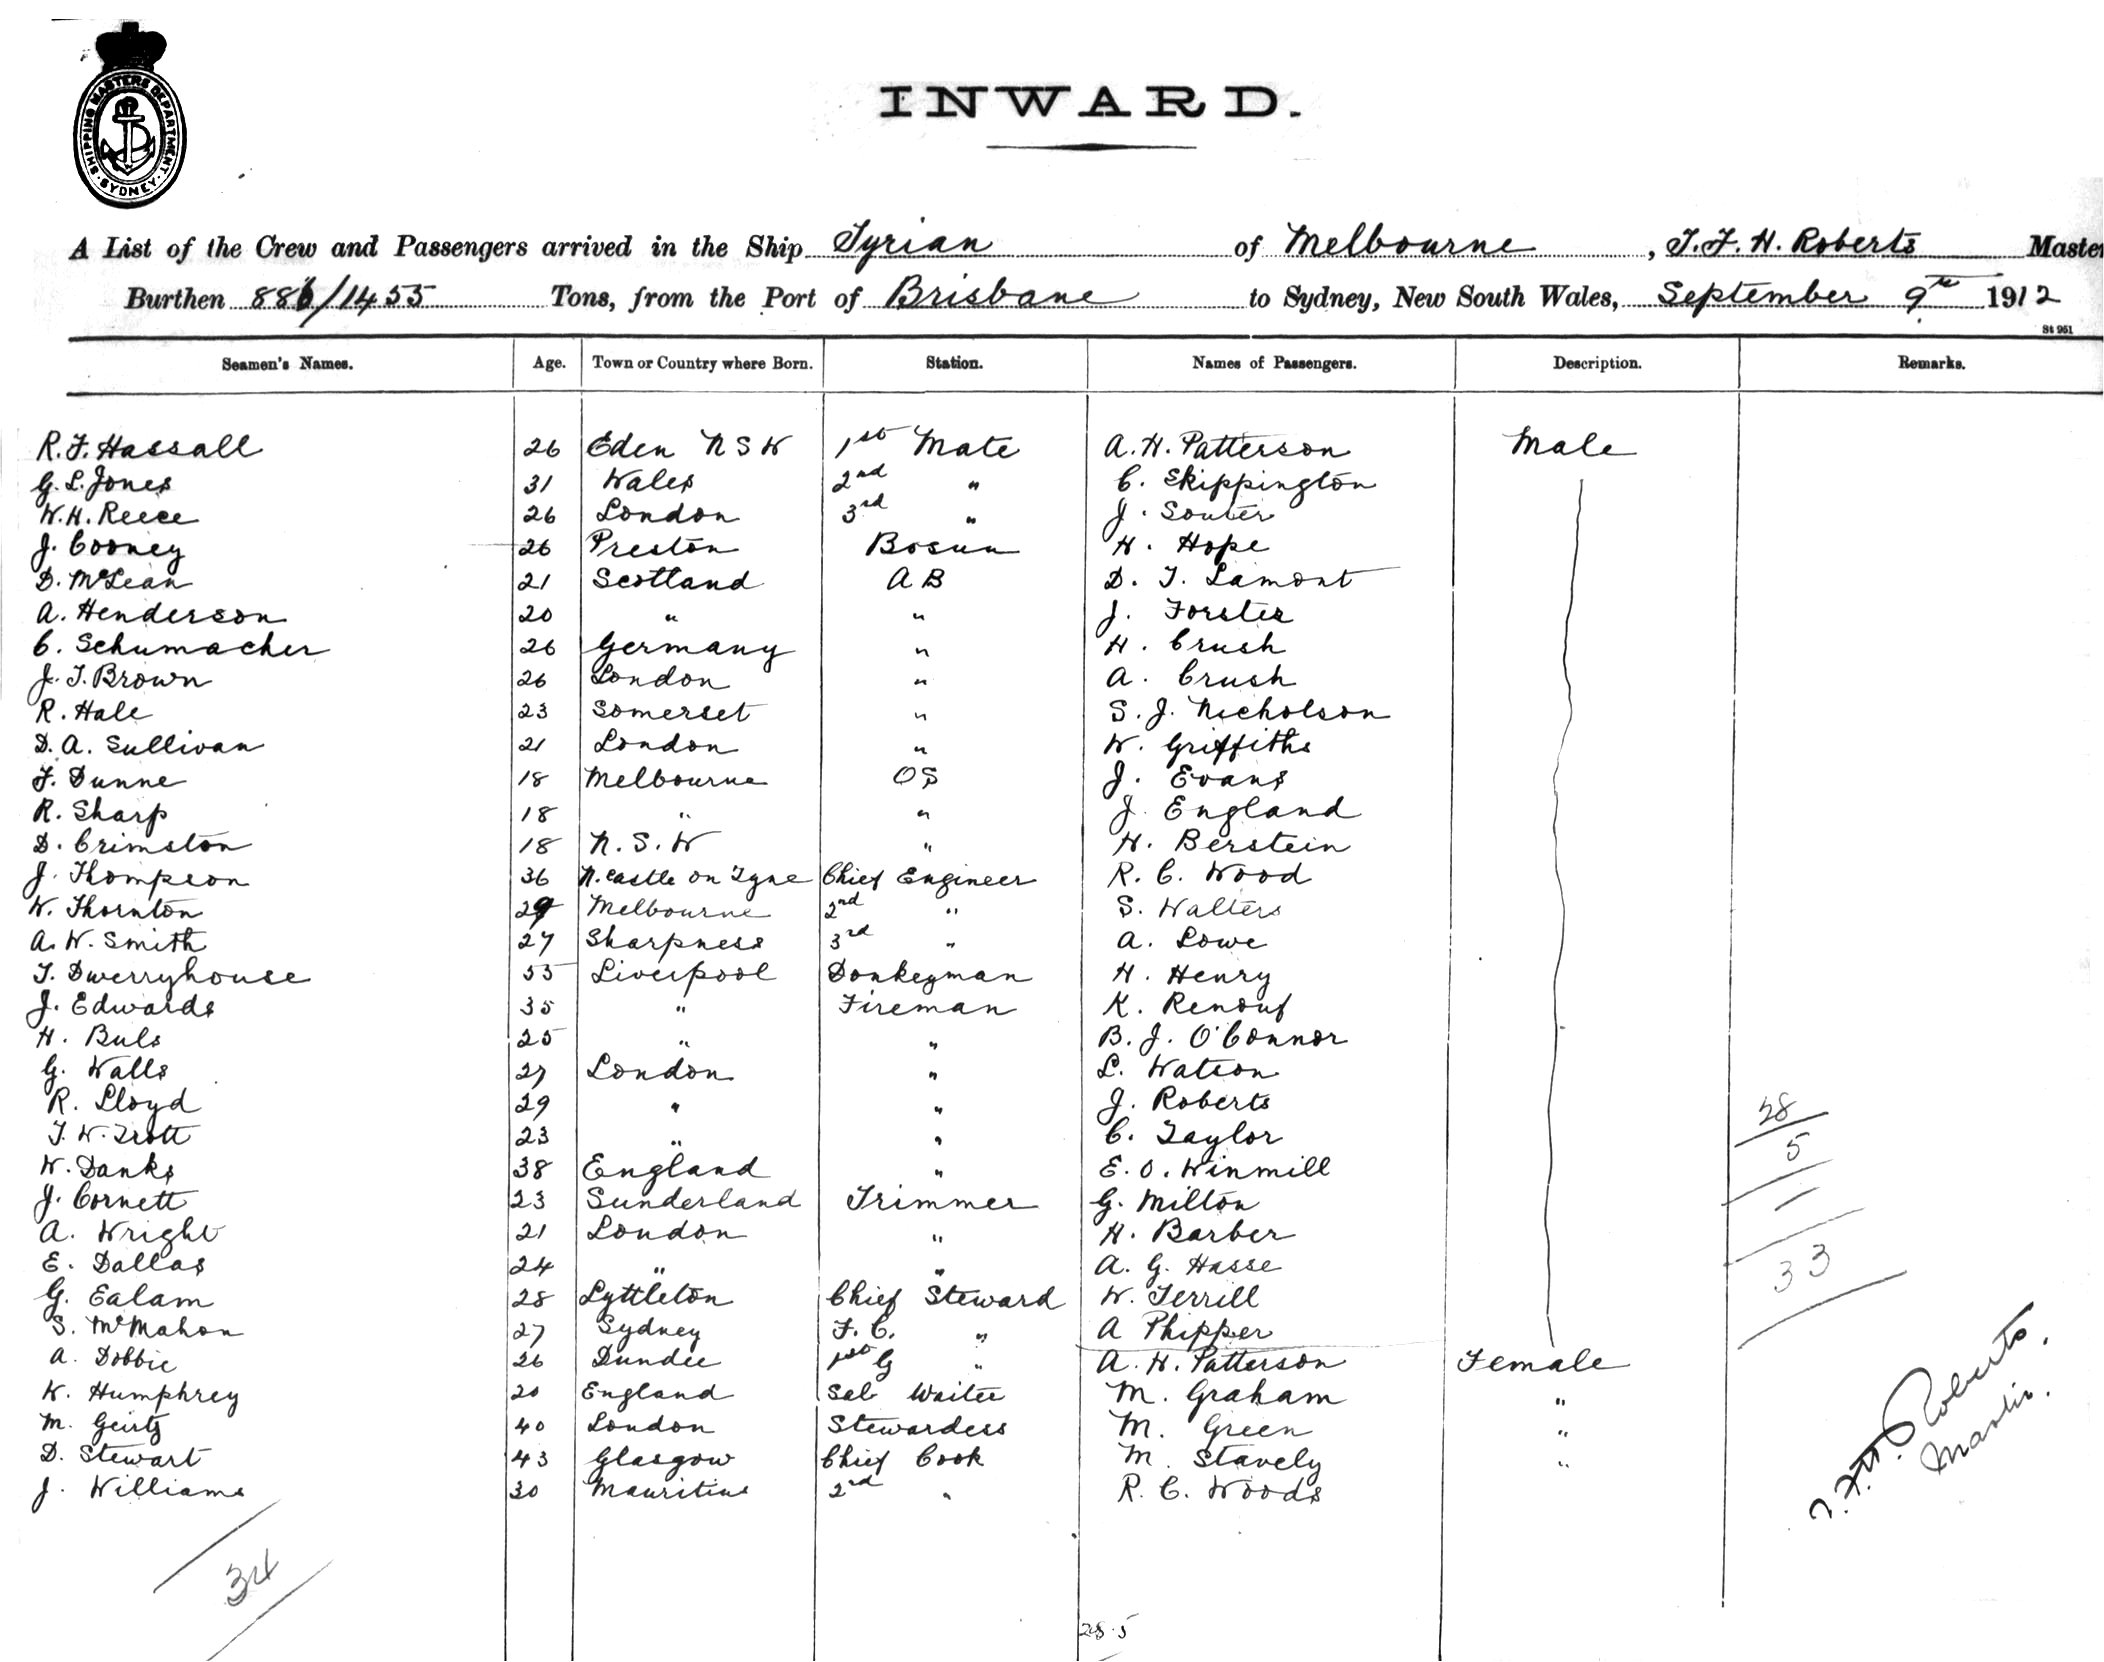 SHIPPING MASTERS DEPARTMENT · SYDNEY ·
INWARD.
A List of the Crew and Passengers arrived in the Ship Syrian of Melbourne, T. F. H. Roberts Master
Burthen 886/1455 Tons, from the Port of Brisbane to Sydney, New South Wales, September 9th 1912
St 951
Seamen's Names. Age. Town or Country where Born. Station. Names of Passengers. Description. Remarks.
R. F. Hassall 26 Eden N S W 1st Mate A. H. Patterson Male
G. L. Jones 31 Wales 2nd " C. Skippington
W. H. Reece 26 London 3rd " J. Souter
J. Cooney 26 Preston Bosun H. Hope
D. McLean 21 Scotland A B D. T. Lamont
A. Henderson 20 " " J. Forster
C. Schumacher 26 Germany " H. Crush
J. T. Brown 26 London " A. Crush
R. Hale 23 Somerset " S. J. Nicholson
D. A. Sullivan 21 London " W. Griffiths
F. Dunne 18 Melbourne OS J. Evans
R. Sharp 18 " " J. England
D. Crimston 18 N. S. W " H. Berstein
J. Thompson 36 N. castle on Tyne Chief Engineer R. C. Wood
W. Thornton 29 Melbourne 2nd " S. Walters
A. W. Smith 27 Sharpness 3rd " A. Lowe
T. Dwerryhouse 55 Liverpool Donkeyman H. Henry
J. Edwards 35 " Fireman K. Renouf
H. Buls 25 " " B. J. O'Connor
G. Walls 27 London " L. Watson
R. Lloyd 29 " " J. Roberts
T. W. Trott 23 " " C. Taylor
W. Danks 38 England " E. O. Winmill
J. Cornett 23 Sunderland Trimmer G. Milton
A. Wright 21 London " H. Barber
E. Dallas 24 " " A. G. Hasse
G. Ealam 28 Lyttleton Chief Steward W. Terrill
S. McMahon 27 Sydney F. C. " A Phipper
A. Dobbie 26 Dundee 1st G " A. H. Patterson Female
W. Humphrey 20 England Sal Waiter M. Graham "
M. Geirtz 40 London Stewardess M. Green "
D. Stewart 43 Glasgow Chief Cook M. Stavely "
J. Williams 30 Mauritius 2nd " R. C. Woods
28
5
33
T. F. H. Roberts.
Master.
34
28.5